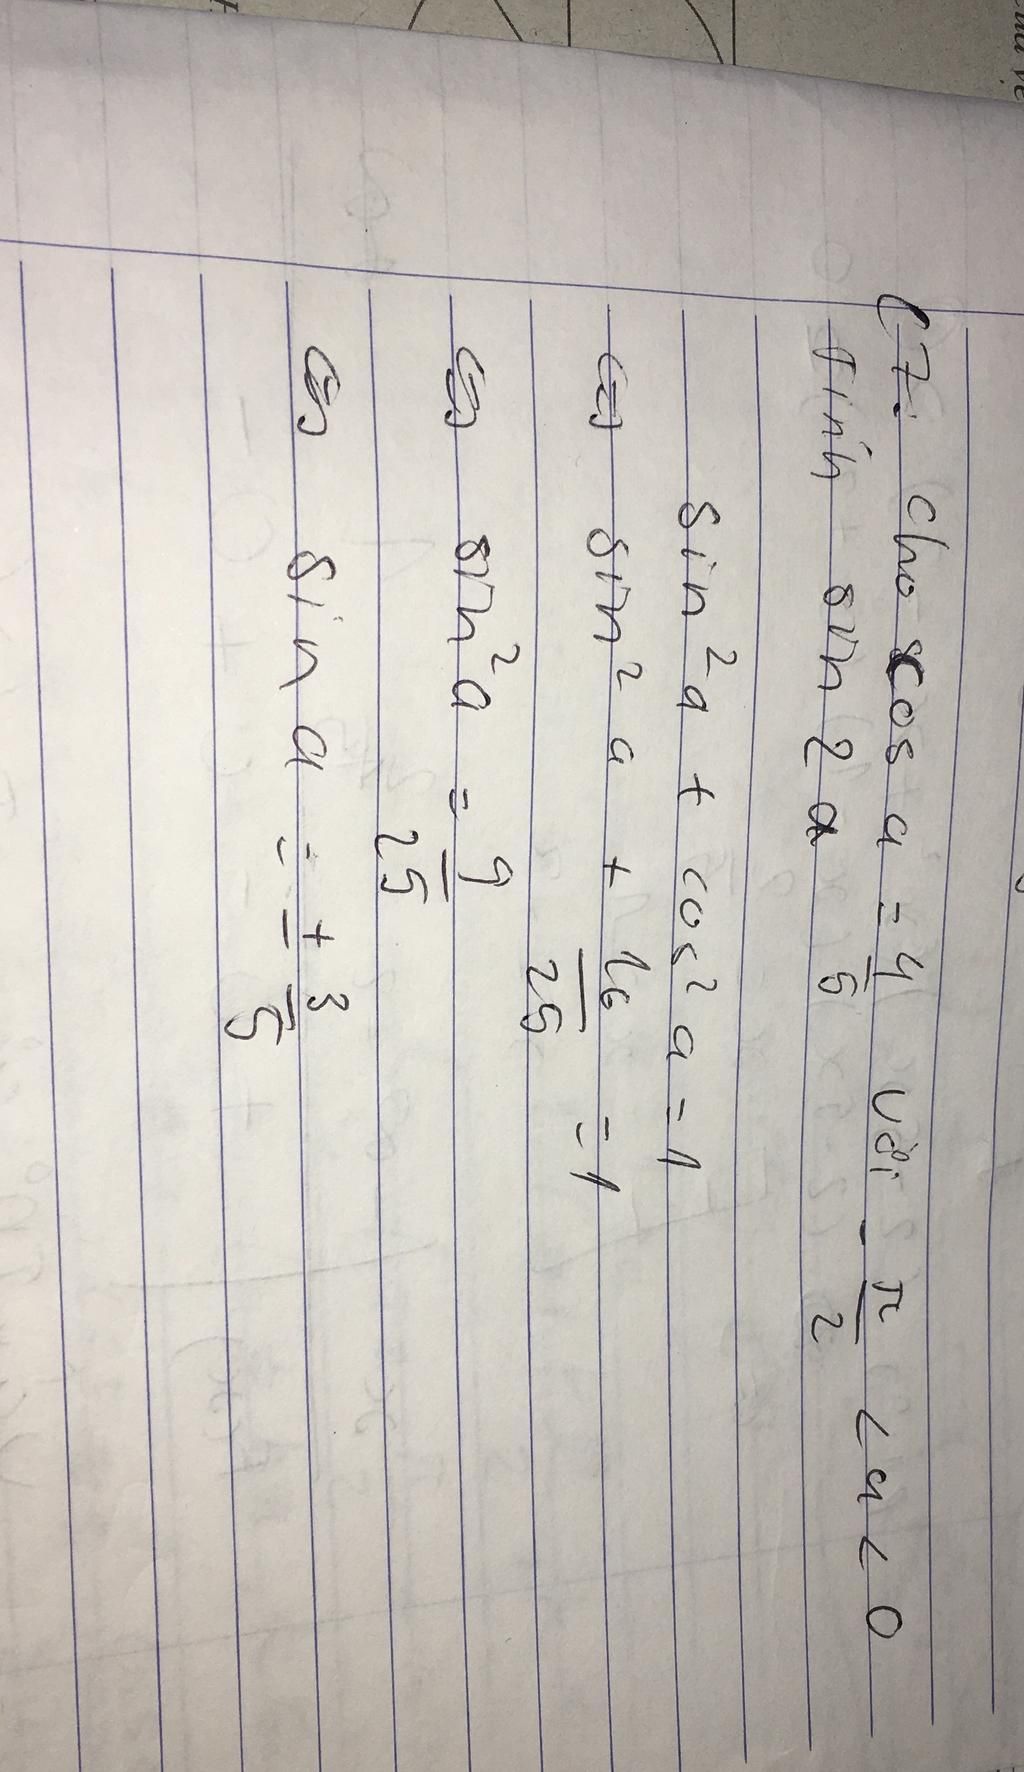 C7: cho cos a = 4/5 với -π/2 < a < 0
Tính sin 2a
sin² a + cos² a = 1
⇔ sin² a + 16/25 = 1
⇔ sin² a = 9/25
⇔ sin a = ± 3/5